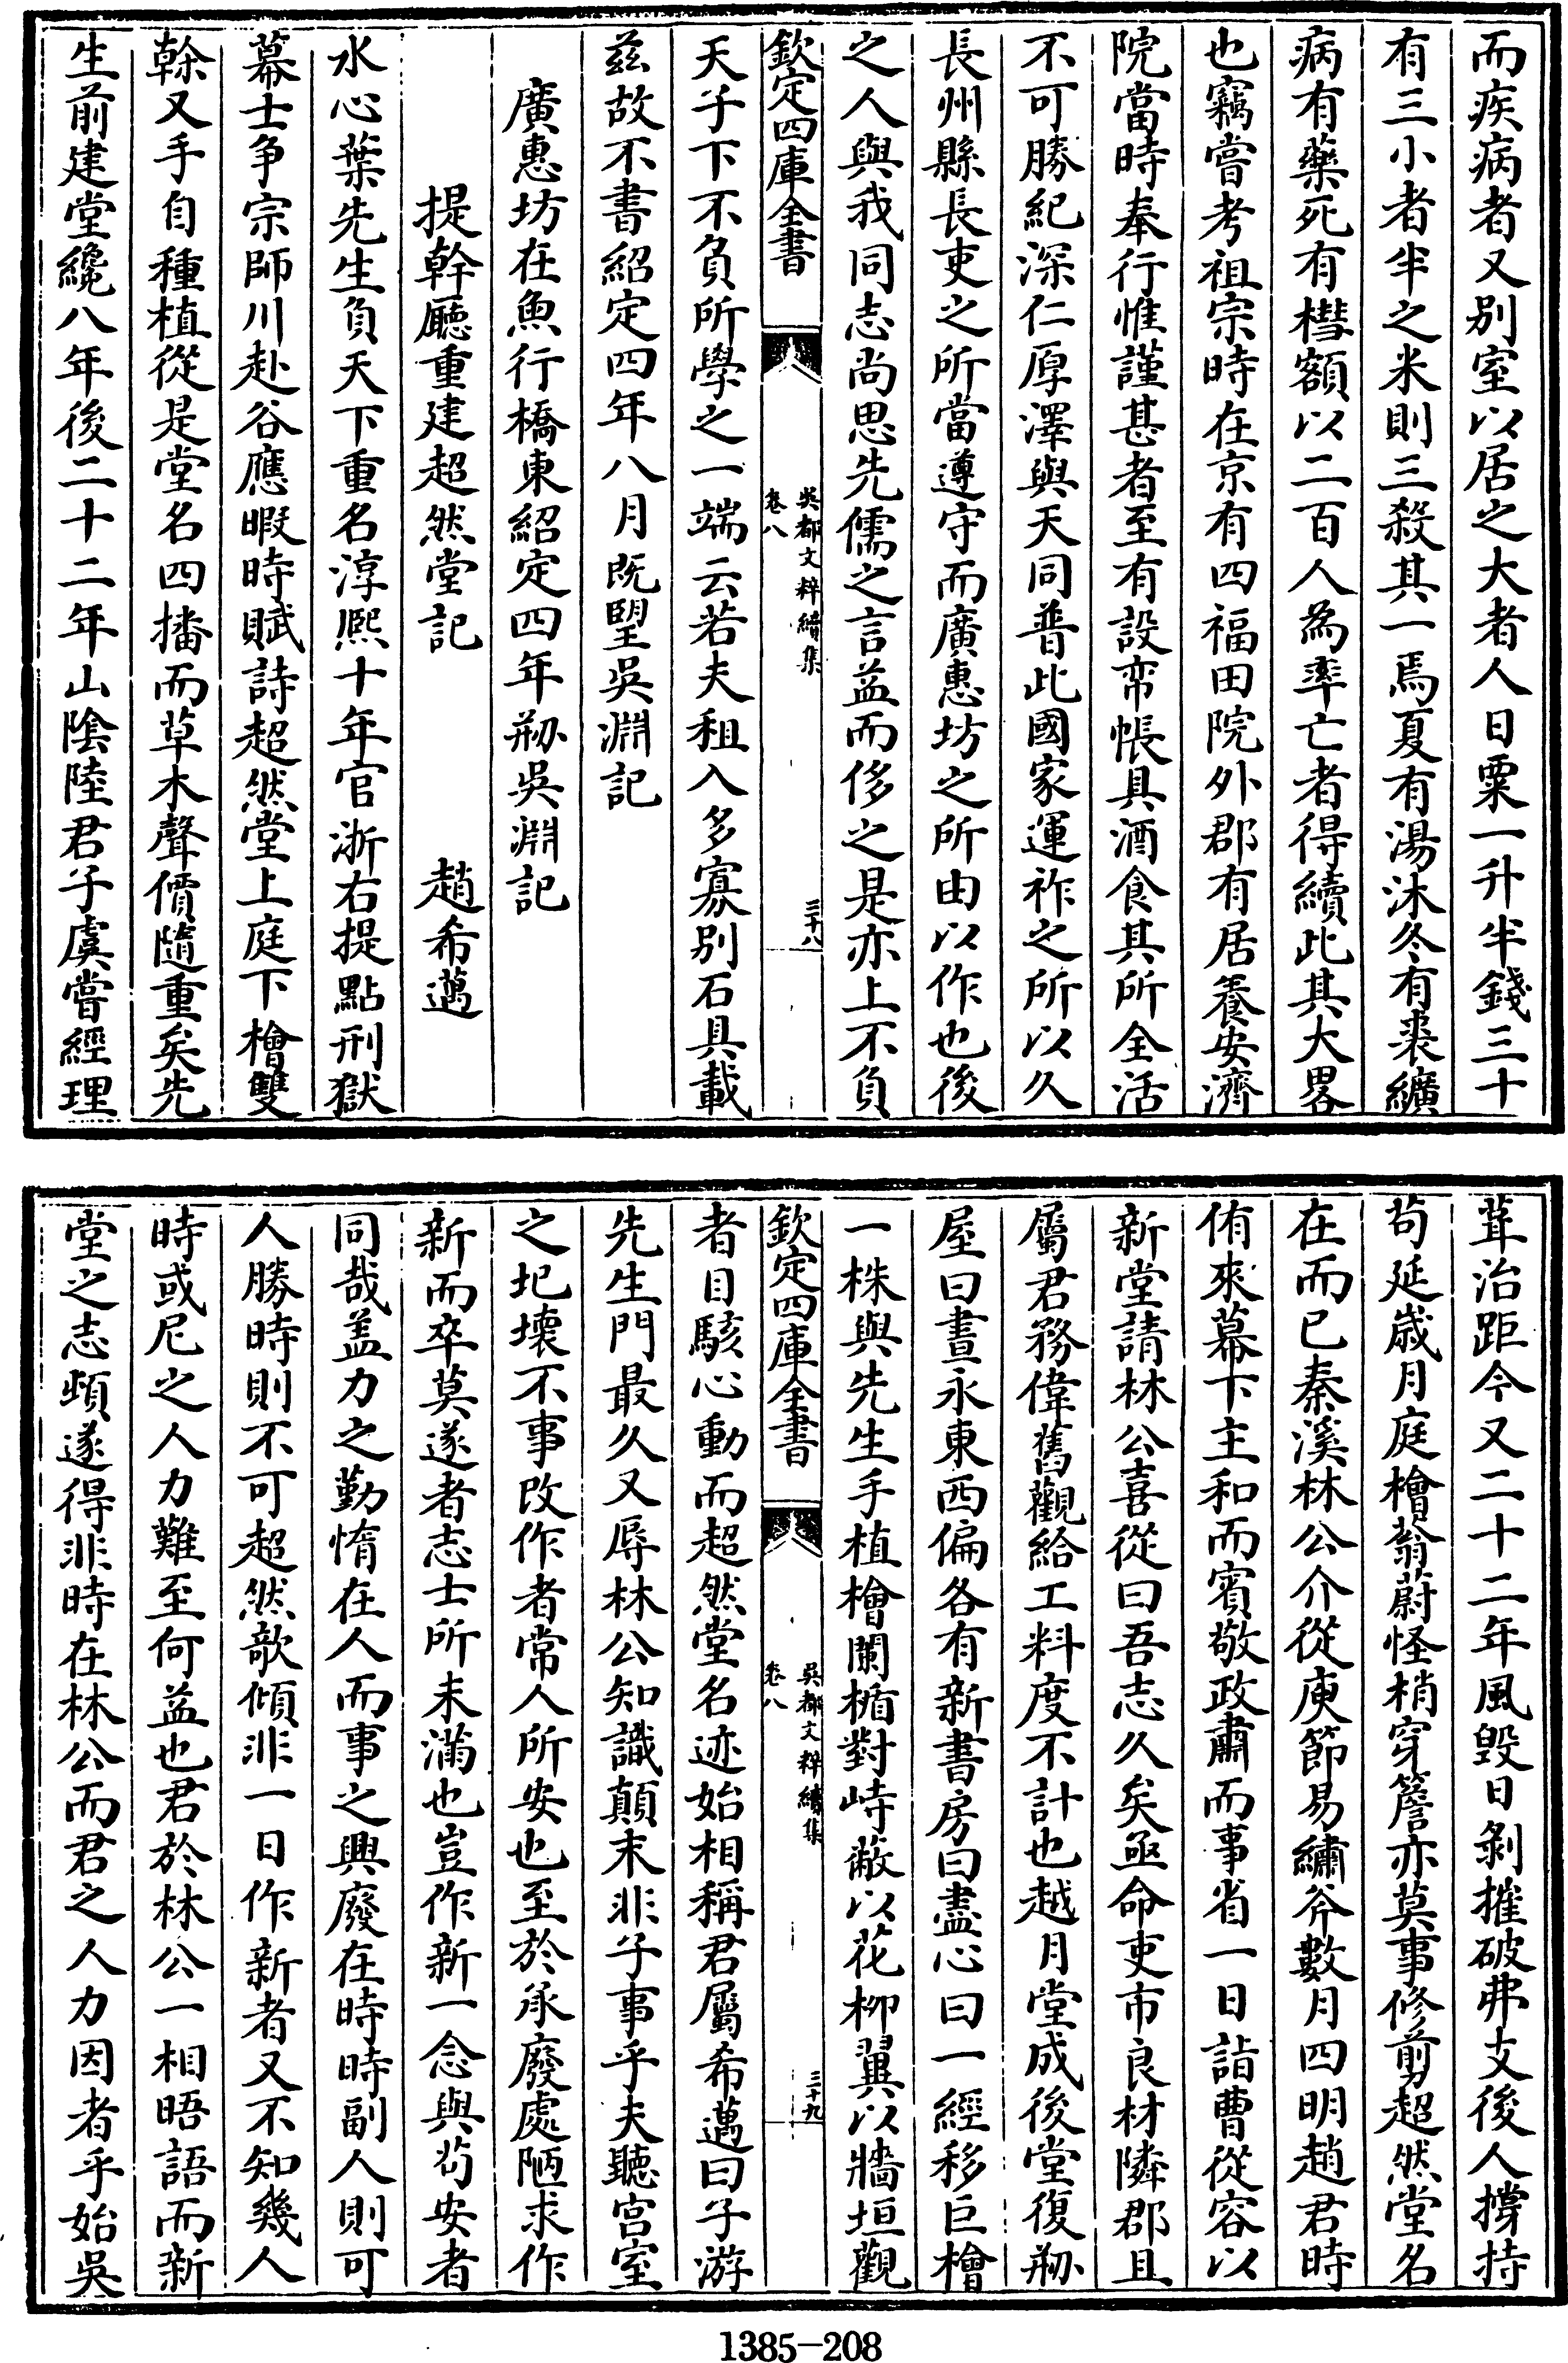 而疾病者又别室以居之大者人日粟一升半錢三十
有三小者半之米則三殺其一焉夏有湯沐冬有裘纊
病有藥死有槥額以二百人為率亡者得續此其大畧
也竊嘗考祖宗時在京有四福田院外郡有居養安濟
院當時奉行惟謹甚者至有設帟帳具酒食其所全活
不可勝紀深仁厚澤與天同普此國家運祚之所以久
長州縣長吏之所當遵守而廣惠坊之所由以作也後
之人與我同志尚思先儒之言益而侈之是亦上不負
欽定四庫全書
吳都文粹續集
卷八
三十八
天子下不負所學之一端云若夫租入多寡别石具載
兹故不書紹定四年八月既朢吳淵記
廣惠坊在魚行橋東紹定四年剏吳淵記
提幹廳重建超然堂記
趙希邁
水心葉先生負天下重名淳熈十年官浙右提點刑獄
幕士争宗師川赴谷應暇時賦詩超然堂上庭下檜雙
榦又手自種植從是堂名四播而草木聲價隨重矣先
生前建堂纔八年後二十二年山陰陸君子虡嘗經理
葺治距今又二十二年風毁日剝摧破弗支後人撐持
苟延歲月庭檜蓊蔚怪梢穿簷亦莫事修剪超然堂名
在而已秦溪林公介從庾節易繡斧數月四明趙君時
侑來幕下主和而賓敬政肅而事省一日詣曹從容以
新堂請林公喜從曰吾志久矣亟命吏市良材隣郡且
屬君務偉舊觀給工料度不計也越月堂成後堂復剏
屋曰晝永東西偏各有新書房曰盡心曰一經移巨檜
一株與先生手植檜闌楯對峙蔽以花柳翼以牆垣觀
欽定四庫全書
吳都文粹續集
卷八
三十九
者目駭心動而超然堂名迹始相稱君屬希邁曰子游
先生門最久又辱林公知識顛末非子事乎夫聽宫室
之圮壞不事改作者常人所安也至於承廢處陋求作
新而卒莫遂者志士所未滿也豈作新一念與茍安者
同哉盖力之勤惰在人而事之興廢在時時副人則可
人勝時則不可超然欹傾非一日作新者又不知幾人
時或尼之人力難至何益也君於林公一相晤語而新
堂之志頓遂得非時在林公而君之人力因者乎始吳
1385-208